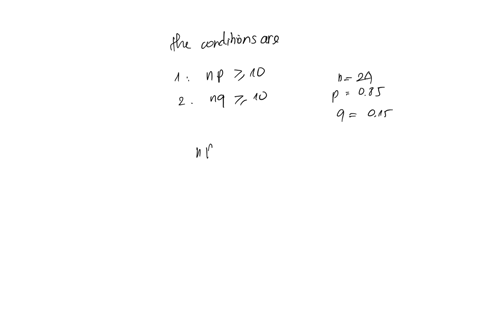 the conditions are
1. np ≥ 10
2. nq ≥ 10
n = 24
p = 0.85
q = 0.15
np